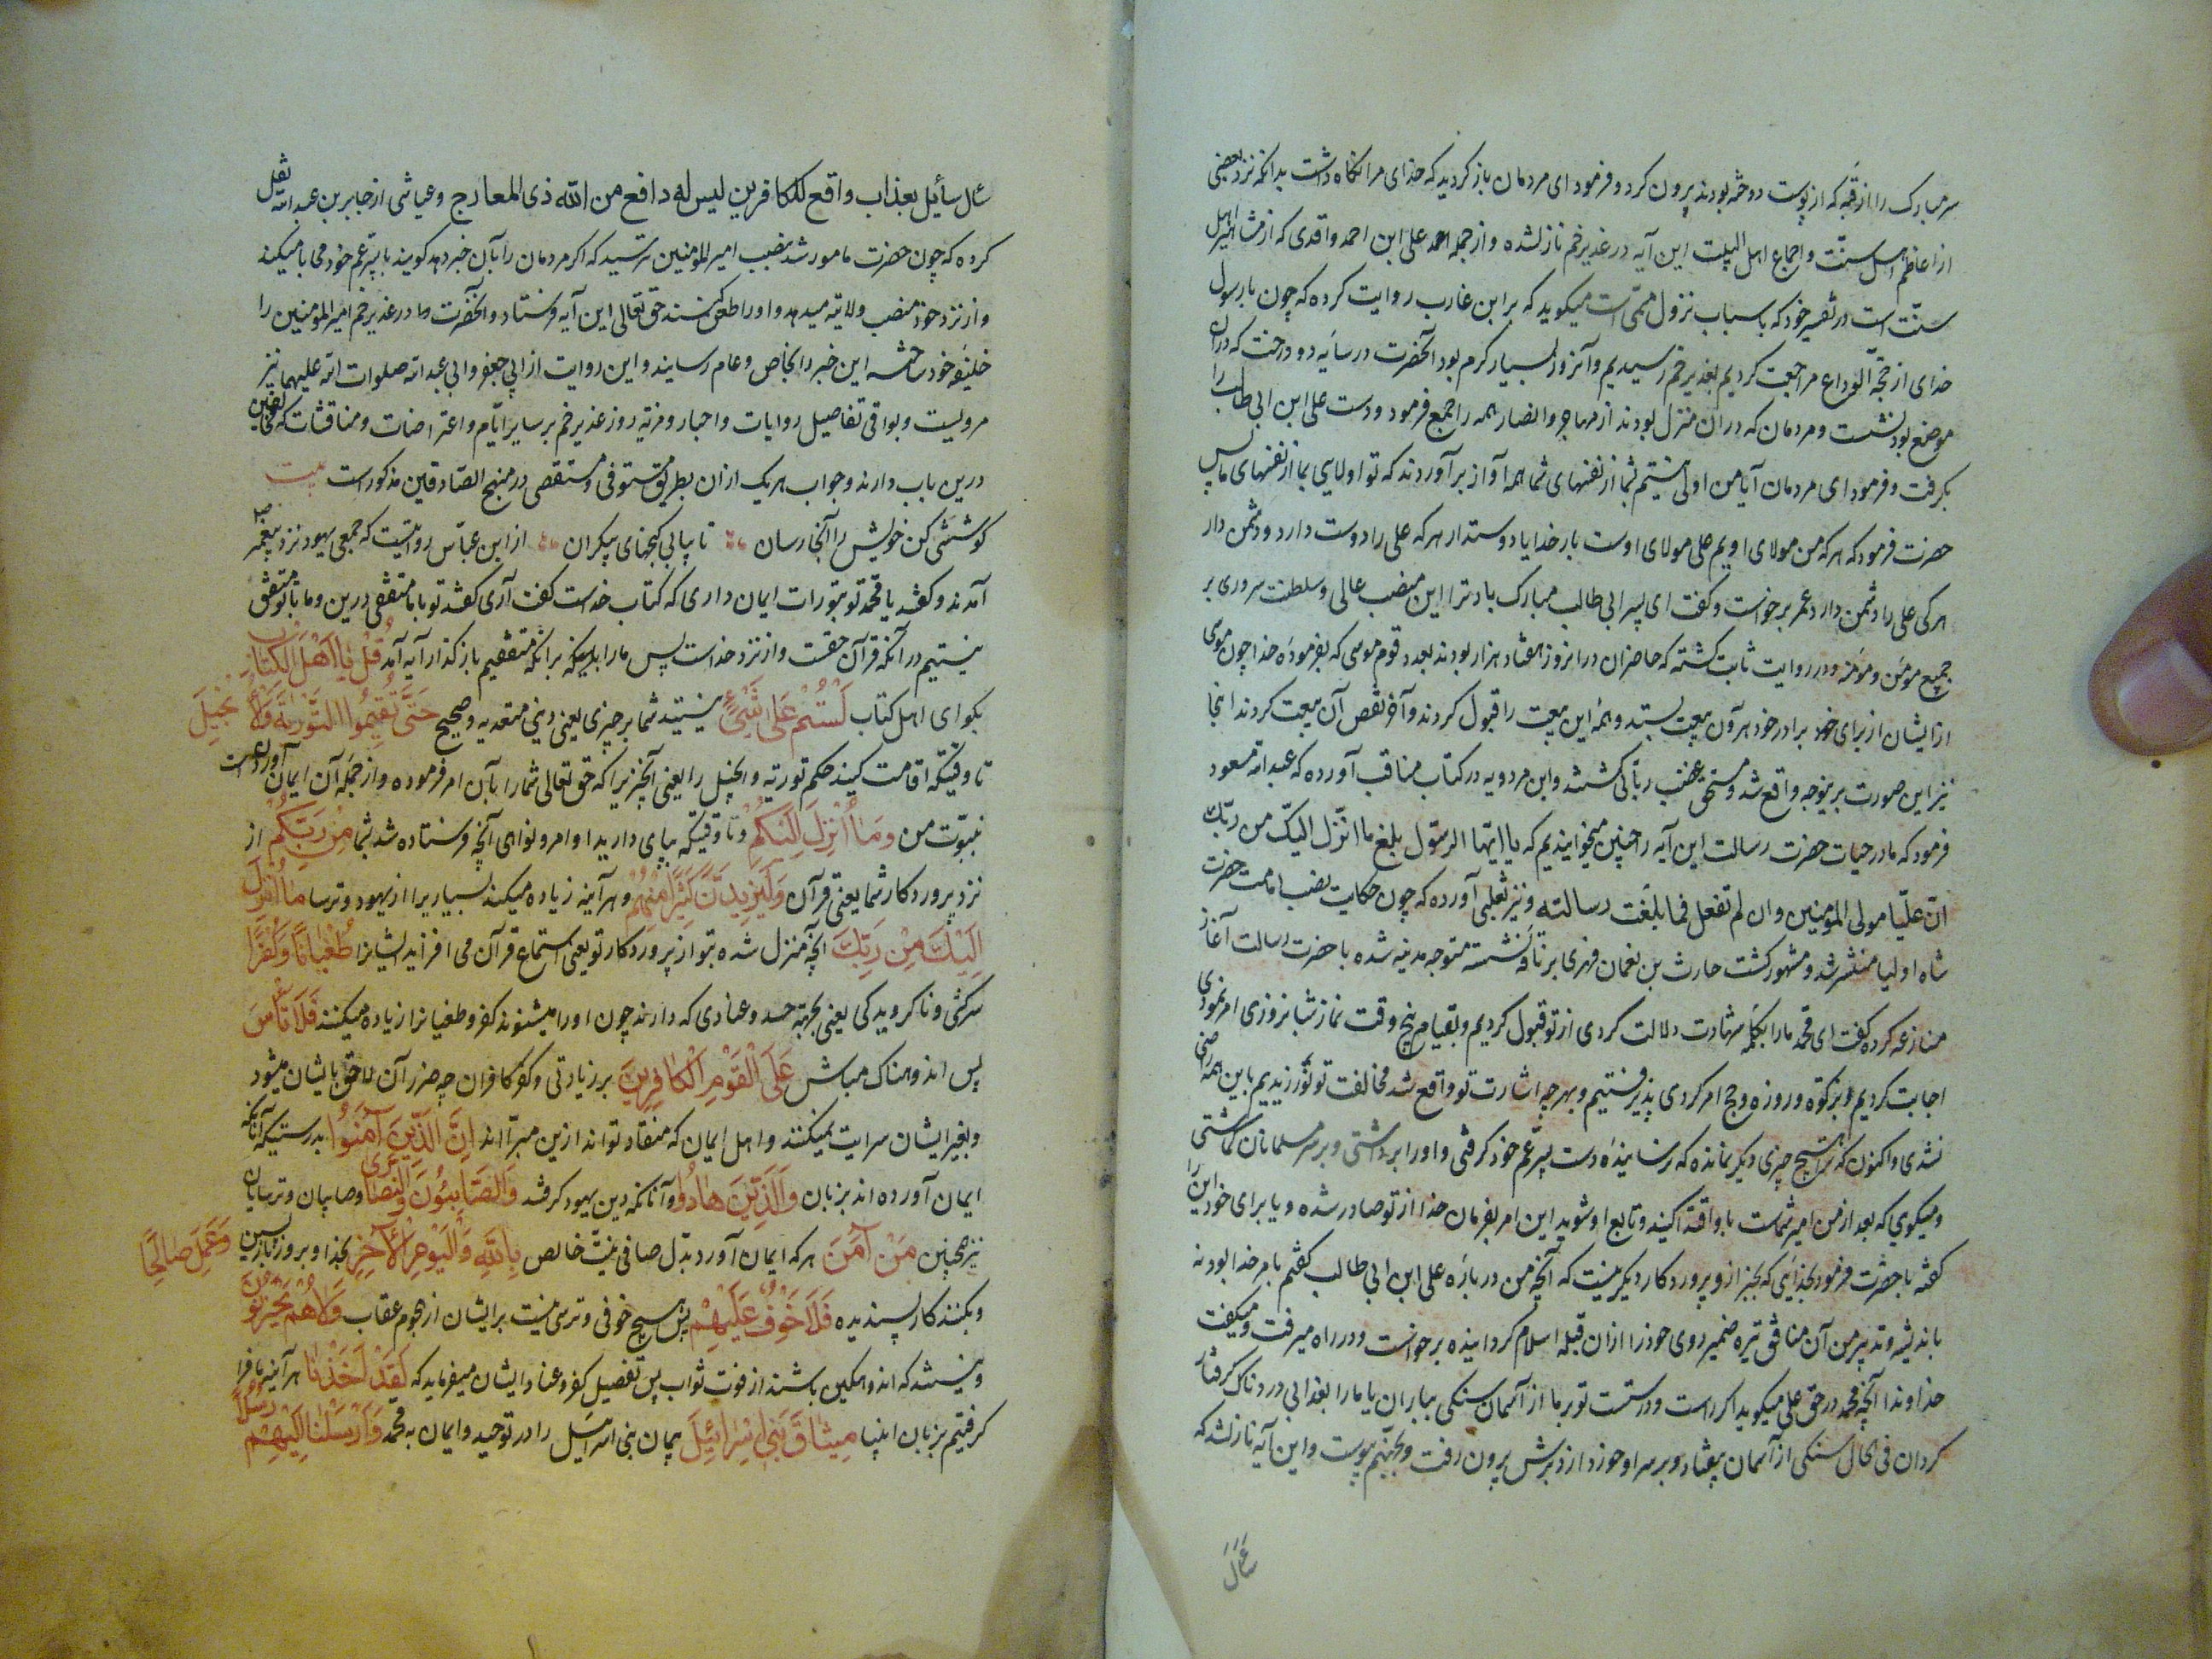 سر مبارک را از قبّه که از پوست دوخته بودند بیرون کرد و فرمود ای مردمان باز کردید که خدای مرا نکاه داشت بدانکه نزد بعضی
از اعاظم اهل سنّت و اجماع اهل البیت این آیه در غدیر خم نازلشده و از جمله علی ابن احمد واقدی که از مشاهیر اهل
سنّت است در تفسیر خود که باسباب نزول مسمّی است میکوید که برا بن عازب روایت کرده که چون با رسول
خدای از حجّة الوداع مراجعت کردیم بغدیر خم رسیدیم و آنروز بسیار کرم بود آنحضرت در سایه دو درخت که در آن
موضع بود بنشست و مردمان که در ان منزل بودند از مهاجر و انصار همه را جمع فرمود و دست علی ابن ابی طالب را
بکرفت و فرمود ای مردمان آیا من اولی نیستم بشما از نفسهای شما همه آواز برآوردند که تو اولایی بما از نفسهای ما پس
حضرت فرمود که هر که من مولای اویم علی مولای اوست بار خدایا دوست دار هر که علی را دوست دارد و دشمن دار
هر کی علی را دشمن دارد عمر برخواست و کفت ای پسر ابی طالب مبارک باد ترا این منصب عالی و سلطنت سروری بر
جمیع مؤمن و مؤمنه و در روایت ثابت کشته که حاضران در انروز هفتاد هزار بودند بعدد قوم موسی که بفرموده خدا چون موسی
از ایشان از برای خود برادر خود هرون بیعت بستد و همه این بیعت را قبول کردند و آخر نقض آن بیعت کردند اینجا
نیز این صورت برینوجه واقع شد و مستحق غضب ربّانی کشتند و ابن مردویه در کتاب مناقب آورده که عبد الله مسعود
فرمود که ما در حیات حضرت رسالت این آیه را چنین میخواندیم که یا ایّها الرسول بلغ ما انزل الیک من ربّک
انّ علیّا مولی المؤمنین و ان لم تفعل فما بلّغت رسالته و نیز ثعلبی آورده که چون حکایت نصب امامت حضرت
شاه اولیا منتشر شد و مشهور کشت حارث بن نعمان فهری بر ناقه نشسته متوجه مدینه شده با حضرت رسالت آغاز
منازعه کرده کفت ای محمّد ما را بکلمه شهادت دلالت کردی از تو قبول کردیم و بقیام پنج وقت نماز شبانروزی امر نمودی
اجابت کردیم و بزکوة و روزه و حج امر کردی پذیرفتیم و بهر چه اشارت تو واقع شد مخالفت تو نورزیدیم باین همه راضی
نشدی و اکنون که ترا هیچ چیزی دیکر نمانده که نرسانیدهٔ دست پسر عم خود کرفتی و او را برداشتی و بر سر مسلمانان کماشتی
و میکویی که بعد از من امیر شماست باو اقتدا کنید و تابع او شوید این امر بفرمان خدا از تو صادر شده و یا برای خود این را
کفته با حضرت فرمود بخدایی که بجز از و پروردکار دیکر نیست که آنچه من در باره علی ابن ابی طالب کفتم بامر خدا بود نه
باندیشه و تدبیر من آن منافق تیره ضمیر روی خود را از ان قبله اسلام کردانیده برخواست و در راه میرفت و میکفت
خداوندا آنچه محمد در حق علی میکوید اکر راست و درست است تو بر ما از آسمان سنکی بباران یا ما را بعذابی دردناک کرفتار
کردان فی الحال سنکی از آسمان بیفتاد و بر سر او خورد از دبرش بیرون رفت و بجهنّم پیوست و این آیه نازلشد که
سَأَلَ
سأل سائل بعذاب واقع للکافرین لیس له دافع من الله ذی المعارج و عیاشی از جابر بن عبد الله نقل
کرده که چون حضرت مامور شد بنصب امیر المؤمنین ترسید که اکر مردمان را بآن خبر دهد کویند با پسر عم خود محابا میکند
و از نزد خود منصب ولایة میدهد و او را طعن کنند حق تعالی این آیه فرستاد و آنحضرت ما در غدیر خم امیر المؤمنین را
خلیفه خود ساخته این خبر را بخاص و عام رسانید و این روایت از ابی جعفر و ابی عبد الله صلوات الله علیهما نیز
مرویست و بواقی تفاصیل روایات و اخبار و مزیة روز غدیر خم بر سایر ایّام و اعتراضات و مناقشات که مخالفین
درین باب دارند و جواب هر یک از ان بطریق مستوفی و مستقصی در منهج الصّادقین مذکور است بیت
کوششی کن خویش را آنجا رسان تا بیابی کنجهای بیکران از ابن عبّاس روایتست که جمعی یهود نزد پیغمبر
آمدند و کفتند یا محمّد تو بتورات ایمان داری که کتاب خداست کفت آری کفتند تو با ما متفقی درین و ما با تو متفق
نیستیم در آنکه قرآن حقست و از نزد خداست پس ما را بر آنکه متفقیم باز کذار آیه آمد قُلْ یٰا اَهْلَ الْکِتٰابِ
بکو ای اهل کتاب لَسْتُمْ عَلیٰ شَیْءٍ نیستید شما بر چیزی یعنی دینی معتد به و صحیح حَتّیٰ تُقیمُوا التَّوْریٰةَ وَ الْاِنْجیلَ
تا وقتیکه اقامت کنید حکم توریة و انجیل را یعنی آنچیز را که حق تعالی شما را بآن امر فرموده و از جمله آن ایمان آوردن است
بنبوّت من وَ مٰا اُنْزِلَ اِلَیْکُمْ و تا وقتیکه بپای دارید اوامر و نواهی آنچه فرستاده شد بشما مِنْ رَبِّکُمْ از
نزد پروردکار شما یعنی قرآن وَ لَیَزیدَنَّ کَثیراً مِنْهُمْ و هر آینه زیاده میکند بسیاریرا از یهود و ترسا مٰا اُنْزِلَ
اِلَیْکَ مِنْ رَبِّکَ آنچه منزل شده بتو از پروردکار تو یعنی استماع قرآن می افزاید ایشانرا طُغْیٰاناً وَ کُفْراً
سرکشی و ناکرویدکی یعنی بجهة حسد و عنادی که دارند چون او را میشنوند کفر و طغیانرا زیاده میکنند فَلٰا تَأْسَ
پس اندوهناک مباش عَلَی الْقَوْمِ الْکٰافِرینَ بر زیادتی و کفر کافران چه ضرر آن لاحق بایشان میشود
و بغیر ایشان سرایت نمیکند و اهل ایمان که منقاد تواند ازین مبرّااند اِنَّ الَّذینَ آمَنُوا بدرستیکه آنانکه
ایمان آورده اند بزبان وَ الَّذینَ هٰادُوا و آنانکه دین یهود کرفتند وَ الصّٰابِئُونَ وَ النَّصٰاریٰ و صابیان و ترسایان
نیز همچنین مَنْ آمَنَ هر که ایمان آورد بدل صافی نیّت خالص بِاللّٰهِ وَ الْیَوْمِ الْآخِرِ بخدا و بروز بازپسین وَ عَمِلَ صٰالِحاً
و بکنند کار پسندیده فَلٰا خَوْفٌ عَلَیْهِمْ پس هیچ خوفی و ترسی نیست بر ایشان از هجوم عقاب وَ لٰا هُمْ یَحْزَنُونَ
و نیستند که اندوهکین باشند از فوت ثواب پس تفصیل کفر و عناد ایشان میفرماید که لَقَدْ اَخَذْنٰا هر آینه ما فرا
کرفتیم بزبان انبیا میثٰاقَ بَنی اِسْرٰائیلَ پیمان بنی اسرائیل را در توحید و ایمان به محمّد وَ اَرْسَلْنٰا اِلَیْهِمْ رُسُلاً